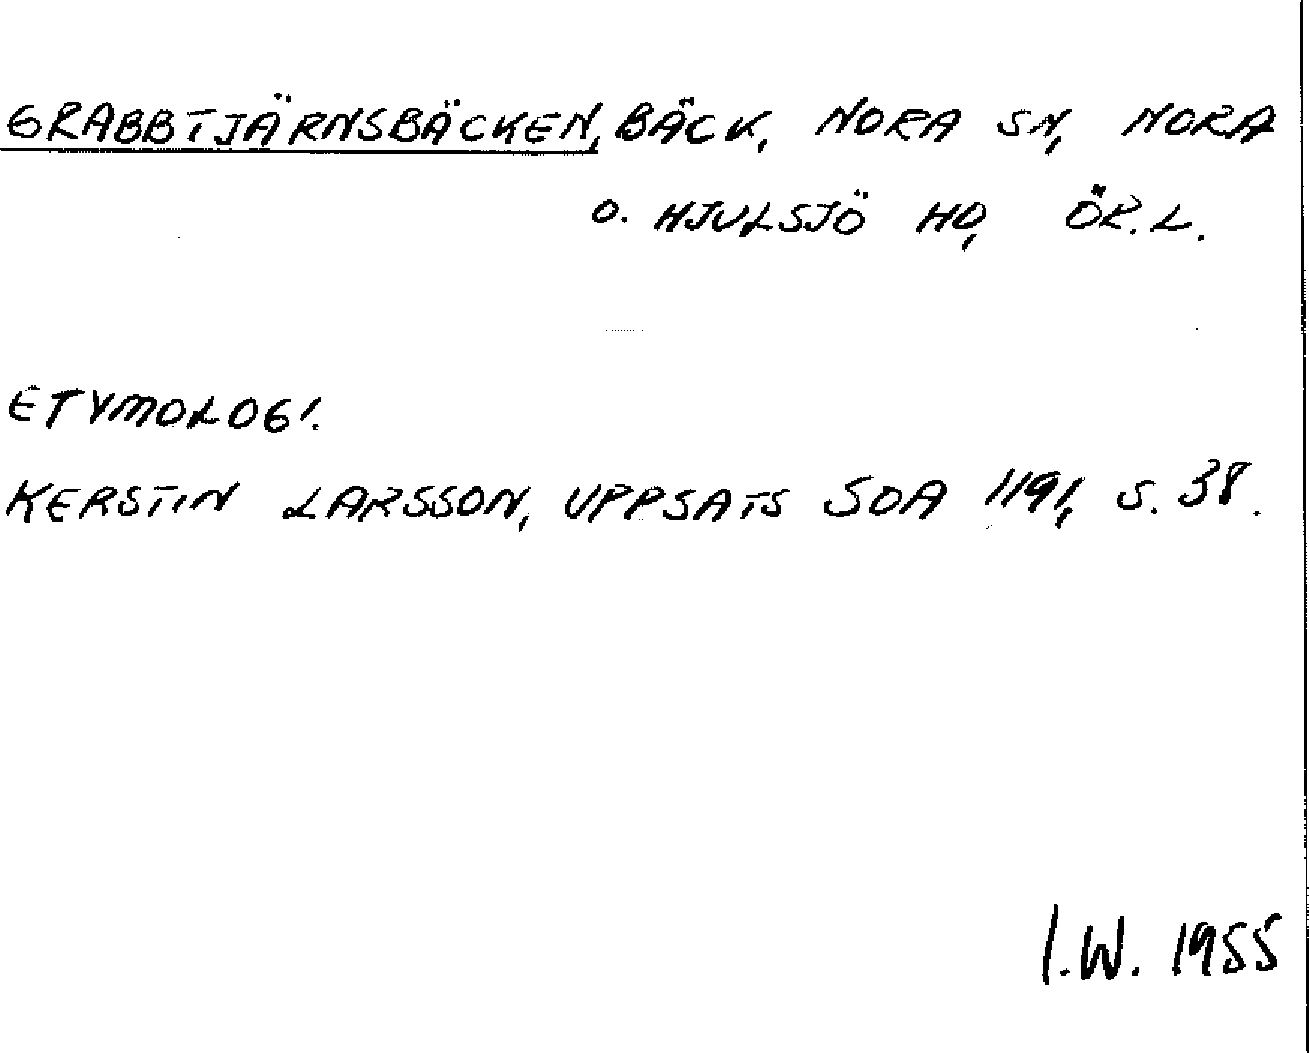 GRABBTJÄRNSBÄCKEN, BÄCK, NORA SN, NORA
O. HJULSJÖ HD, ÖR. L.
ETYMOLOGI.
KERSTIN LARSSON, UPPSATS SOA 1191, S. 38.
I.W. 1955